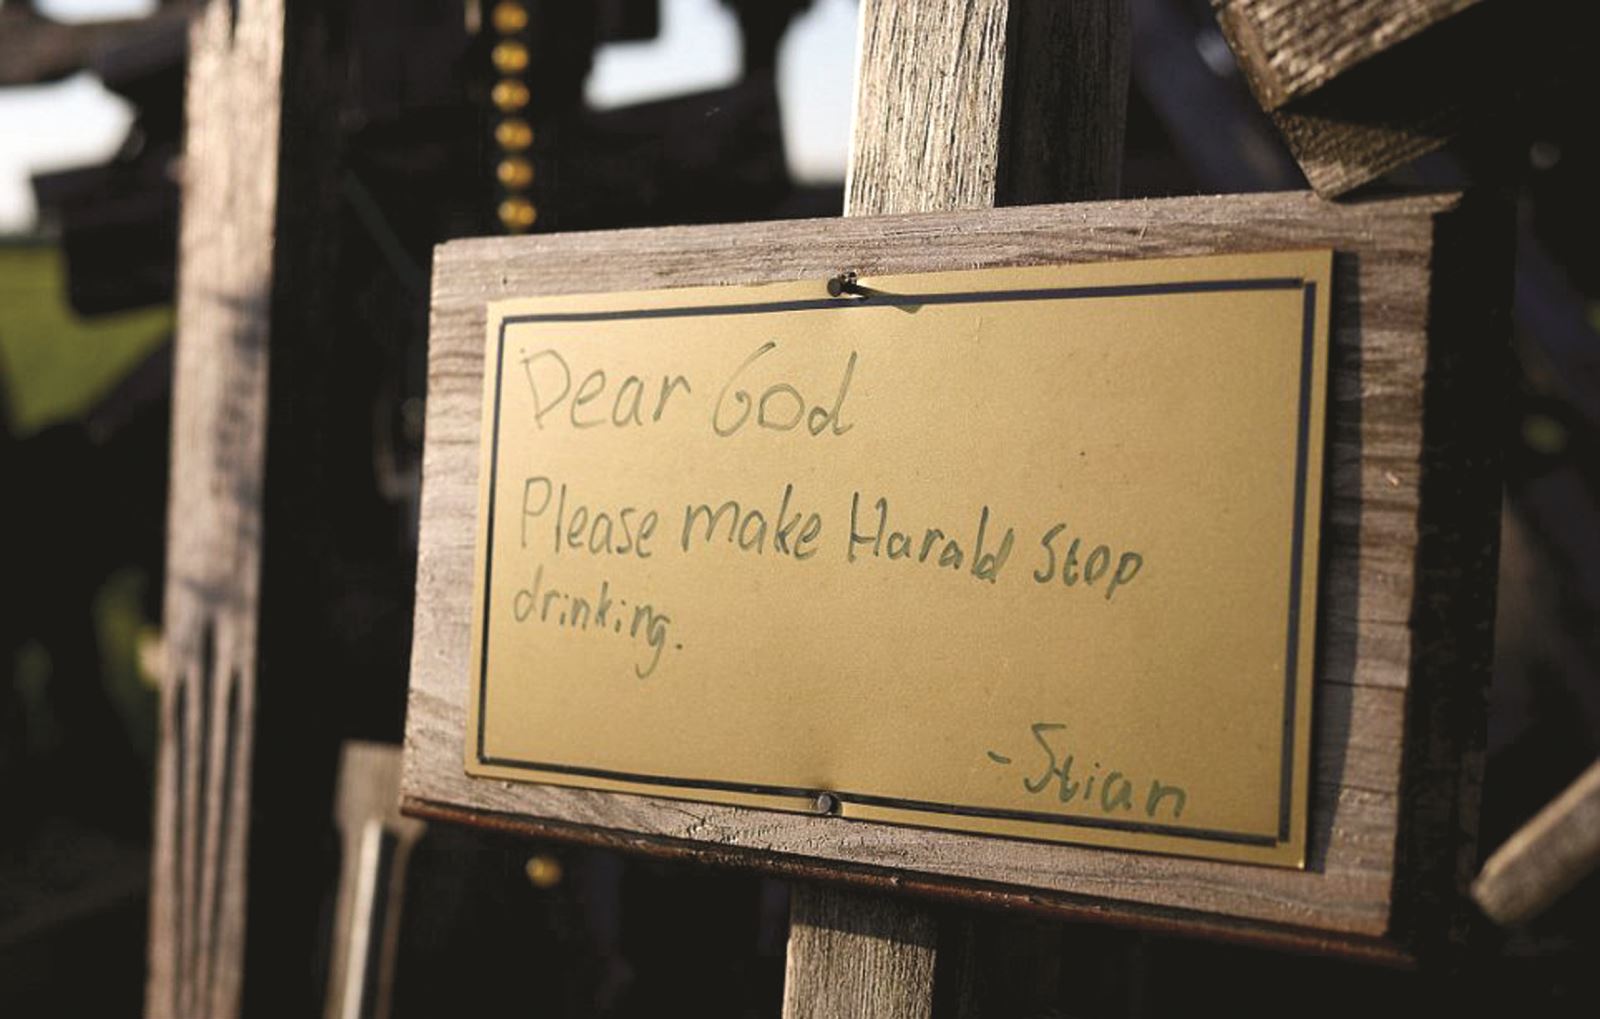 Dear God
Please make Harald Stop
drinking.
-Stian